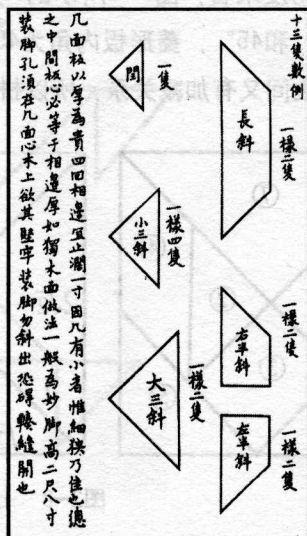 十三隻數例
一樣二隻
長斜
一樣二隻
右半斜
一樣二隻
左半斜
一隻
閏
一樣四隻
小三斜
一樣二隻
大三斜
几面板以厚為貴四回相邊宜止濶一寸因几有小者惟細狹乃佳也總
之中間板心必等于相邊厚如獨木面做法一般為妙脚高二尺八寸
装脚孔須在几面心木上欲其堅牢装脚勿斜出恐碍輳縫開也